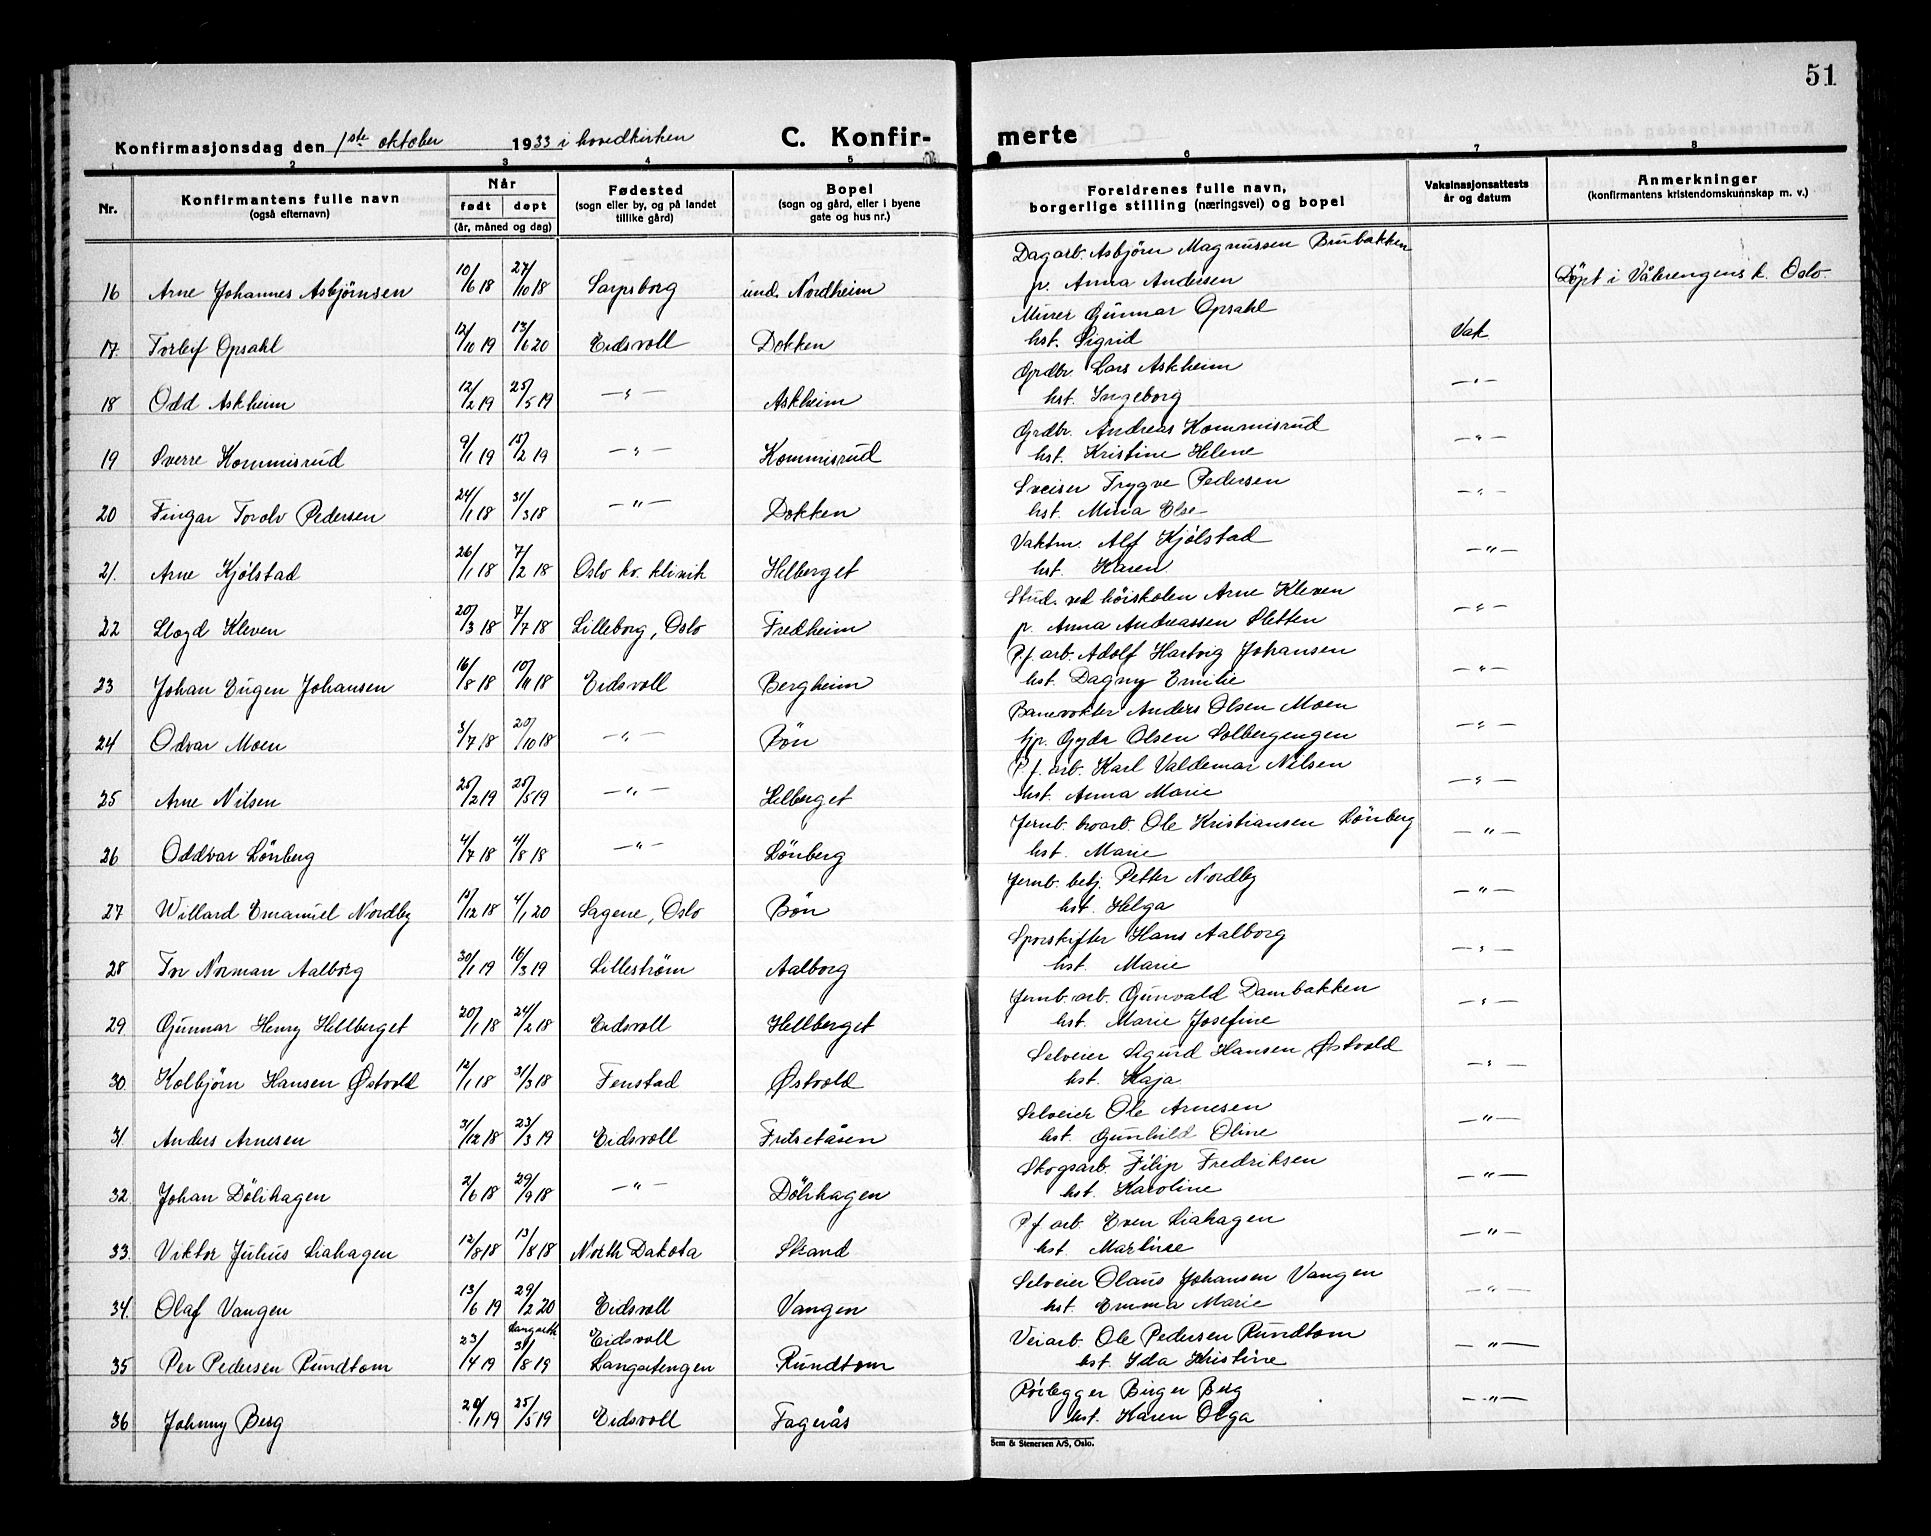 51
Konfirmasjonsdag den 1ste oktober 1933 i hovedkirken C. Konfir- merte
1 2 3 4 5 6 7 8
Nr. Konfirmantens fulle navn (også efternavn) Når født døpt (år, måned og dag) Fødested (sogn eller by, og på landet tillike gård) Bopel (sogn og gård, eller i byene gate og hus nr.) Foreldrenes fulle navn, borgerlige stilling (næringsvei) og bopel Vaksinasjonsattests år og datum Anmerkninger (konfirmantens kristendomskunnskap m. v.)
Dagarb. Asbjörn Magnussen Brubakken
16 Arne Johannes Asbjörnsen 10/6 18 27/10 18 Sarpsborg und. Nordheim p. Anna Andersen Döpt i Vålerengens k. Oslo
Murer Gunnar Opsahl
17. Torleif Opsahl 12/10 19 13/6 20 Eidsvoll Dokken hst. Sigrid Vak
Grdbr. Lars Askheim
18 Odd Askheim 12/2 19 25/5 19 —"— Askheim hst. Ingeborg —"—
Grdbr. Andreas Kommisrud
19 Sverre Kommisrud 9/1 19 15/2 19 —"— Kommisrud hst. Kristine Helene —"—
Sveiser Trygve Pedersen
20 Fingar Torolv Pedersen 24/1 18 31/3 18 —"— Dokken hst. Mina Else —"—
Vaktm. Alf Kjölstad
21. Arne Kjölstad 26/1 18 7/2 18 Oslo kv. klinik Helberget hst. Karen —"—
Stud. ved höiskolen Arne Kleven
22 Kleven 20/3 18 7/7 18 Lilleborg, Oslo Fredheim p. Anna Andreassen Sletten —"—
P.f. arb. Adolf Hartvig Johansen
23 Johan Eugen Johansen 16/8 18 10/11 18 Eidsvoll Bergheim hst. Dagny Emilie —"—
Banevokter Anders Olsen Moen
24 Odvar Moen 3/7 18 20/10 18 —"— Bön hst. Gyda Olsen Solbergengen —"—
P.f. arb. Karl Valdemar Nilsen
25 Arne Nilsen 25/2 19 25/5 19 —"— Helberget hst. Anna Marie —"—
Jernb. broarb. Ole Kristiansen Lönberg
26 Oddvar Lönberg 4/7 18 4/8 18 —"— Lönberg hst. Marie —"—
Jernb. betj. Petter Nordby
27 Willard Emanuel Nordby 12/12 18 4/1 20 Sagene, Oslo Bön hst. Helga —"—
Sporskifter Hans Aalborg
28 Tor Norman Aalborg 30/1 19 16/3 19 Lilleström Aalborg hst. Marie —"—
Jernb. arb. Gunvald Dambakken
29 Gunnar Henry Hellberget 20/1 18 24/2 18 Eidsvoll Hellberget hst. Marie Josefine —"—
Selveier Sigurd Hansen Østvold
30 Kolbjörn Hansen Østvold 12/1 18 31/3 18 Fenstad Østvold hst. Kaja —"—
Selveier Ole Arnesen
31. Anders Arnesen 31/12 18 23/3 19 Eidsvoll Frilsetåsen hst. Gunhild Oline —"—
Skogsarb. Filip Fredriksen
32. Johan Dölihagen 2/6 18 29/9 18 —"— Dölihagen hst. Karoline —"—
P.f arb. Even Liahagen
33. Viktor Julius Liahagen 12/8 18 13/8 18 North Dakota Strand hst. Martine —"—
Selveier Olaus Johansen Vangen
34. Olaf Vangen 13/6 19 29/2 20 Eidsvoll Vangen hst. Emma Marie —"—
Langseth Eidsvoll Veiarb. Ole Pedersen Rundtom
35 Per Pedersen Rundtom 23/4 19 31/8 19 Langsetengen Rundtom hst. Ida Kristine —"—
Rörlegger Birger Berg
36 Johnny Berg 20/1 19 25/5 19 Eidsvoll Fagerås hst. Karen Olga —"—
Sem & Stenersen A/S, Oslo.